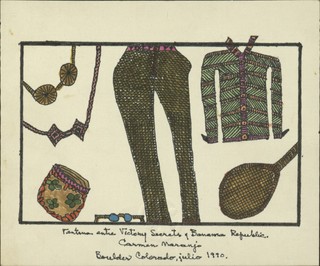 Fortuna entre Victory Secrets y Banana Republic.
Carmen Naranjo
Boulder Colorado, julio 1990.